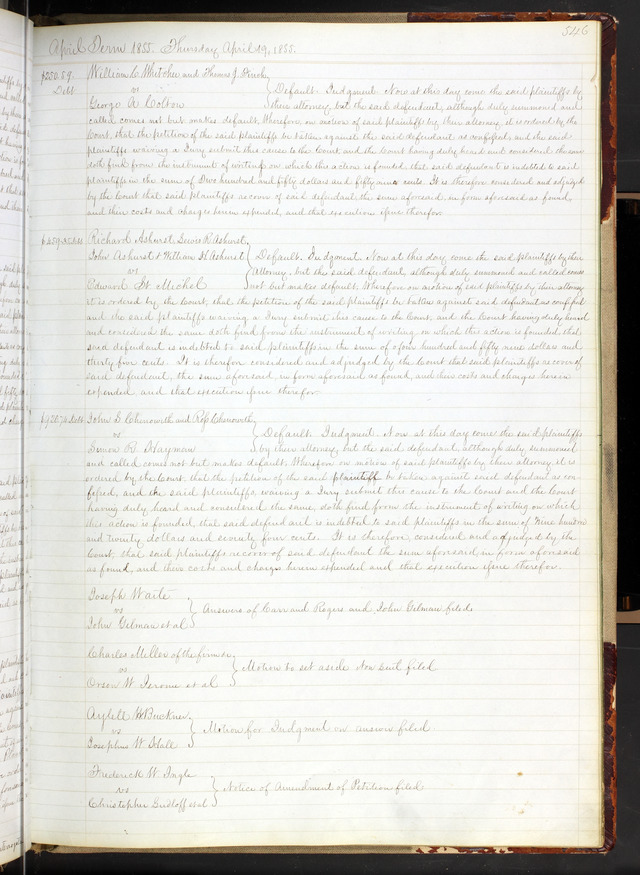 546
April Term 1855. Thursday April 19, 1855.
$250.59. William C. Whitcher and Thomas J.
Debt vs Default. Judgment. Now at this day come the said plaintiffs by
George A. Colton their attorney, but the said defendant, although duly summoned and
called comes not but makes default. Wherefore, on motion of said plaintiffs by their attorney, it is ordered by the
Court, that the petition of the said plaintiffs be taken against the said defendant as confessed, and the said
plaintiffs waiving a Jury submit this cause to the Court and the Court having duly heard and considered the same
doth find from the instrument of writing on which this action is founded, that said defendant is indebted to said
plaintiffs in the sum of Two hundred and fifty dollars and fifty nine cents. It is therefore considered and adjudged
by the Court that said plaintiffs recover of said defendant the sum aforesaid, in form aforesaid as found,
and their costs and charges herein expended, and that execution issue therefor.
Richard Ashurst, Lewis R. Ashurst,
John Ashurst & William H. Ashurst Default. Judgment. Now at this day come the said plaintiffs by their
vs attorney, but the said defendant, although duly summoned and called comes
Edward St Michel not but makes default. Wherefore on motion of said plaintiffs by their attorney
it is ordered by the Court, that the petition of the said plaintiffs be taken against said defendant as confessed
and the said plaintiffs waiving a Jury submit this cause to the Court, and the Court having duly heard
and considered the same doth find from the instrument of writing on which this action is founded that
said defendant is indebted to said plaintiffs in the sum of Four hundred and fifty nine dollars and
thirty five cents. It is therefore considered and adjudged by the Court that said plaintiffs recover of
said defendant, the sum aforesaid, in form aforesaid as found, and their costs and charges herein
expended, and that execution issue therefor.
$920.70 Debt John S. Chenowith and Chenowith
vs Default. Judgment. Now at this day come the said plaintiffs
Simon R. Hayman by their attorney, but the said defendant, although duly summoned
and called comes not but makes default. Wherefore on motion of said plaintiffs by their attorney it is
ordered by the Court, that the petition of the said plaintiff be taken against said defendant as con-
fessed, and the said plaintiffs, waiving a Jury submit this cause to the Court and the Court
having duly heard and considered the same, doth find from the instrument of writing on which
this action is founded that said defendant is indebted to said plaintiffs in the sum of Nine hundred
and twenty dollars and seventy four cents. It is therefore, considered and adjudged by the
Court, that said plaintiffs recover of said defendant the sum aforesaid, in form aforesaid
as found, and their costs and charges herein expended and that execution issue therefor.
Joseph Waite
vs Answers of Carr and Rogers and John Gilman filed.
John Gilman et al
Charles Miller of the firm &c.
vs Motion to set aside Non suit filed
Orson W. Jerome et al
Aylett H. Buckner
vs Motion for Judgment on answer filed.
Josephus W. Hall
Frederick W. Ingle
vs Notice of Amendment of Petition filed
Christopher et al